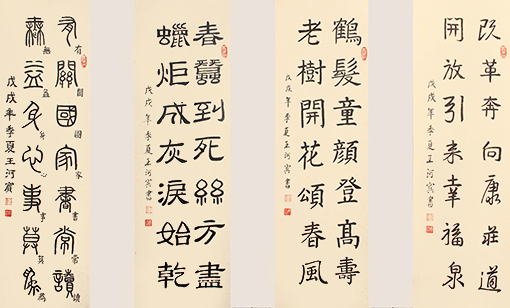 改革奔向康莊道
開放引来幸福泉
戊戌年季夏王河賓書
鶴髮童顏登髙壽
老樹開花頌春風
戊戌年季夏王河賓書
春蠶到死絲方盡
蠟炬成灰淚始乾
戊戌年季夏王河賓書
有關國家書常讀
無益身心事莫為
戊戌年季夏王河賓